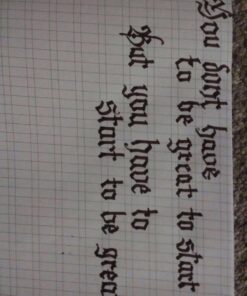 You dont have
to be great to start
But you have to
start to be grea